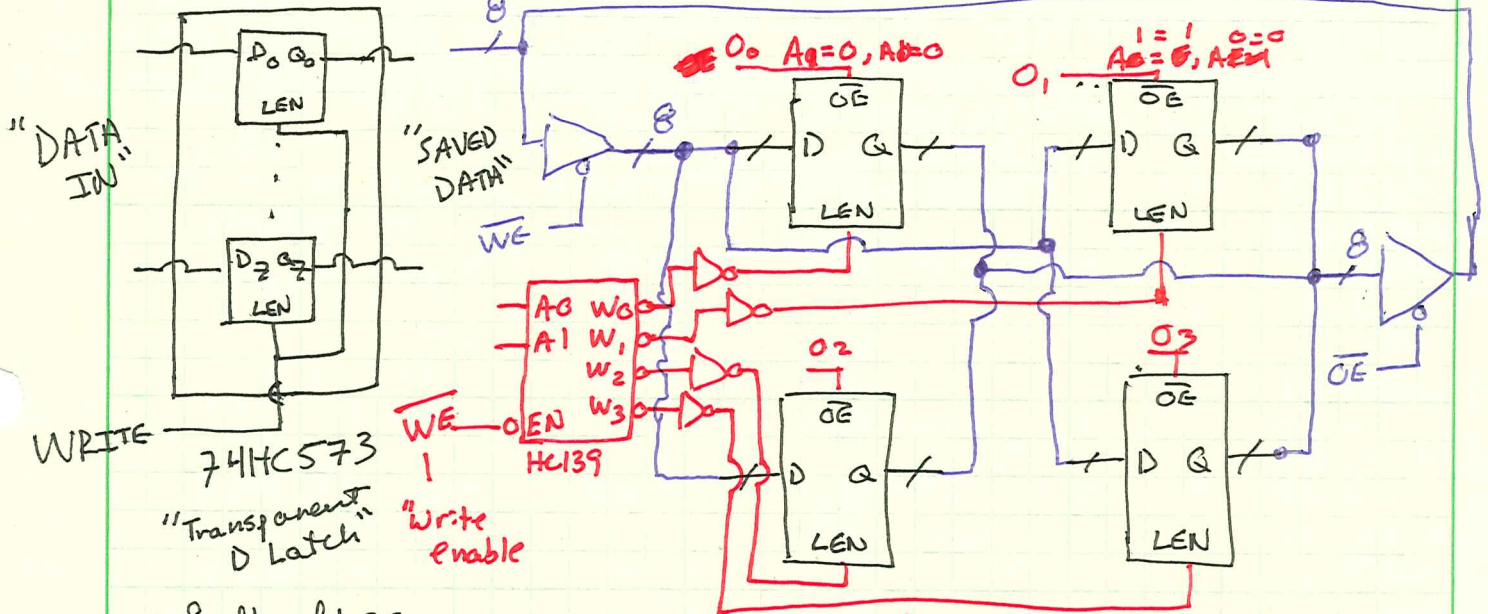 D0 Q0
LEN
"DATA
IN"
D7 Q7
LEN
WRITE
74HC573
"Transparent
D Latch"
"SAVED
DATA"
8
8
W̅E̅
O0 A1=0, A0=0
O̅E̅
D Q
LEN
1 = 1 0=0
O1
O̅E̅
D Q
LEN
8
O̅E̅
A0 W0
A1 W1
W2
W3
EN
HC139
W̅E̅
1
"Write
enable
O2
O̅E̅
D Q
LEN
O3
O̅E̅
D Q
LEN